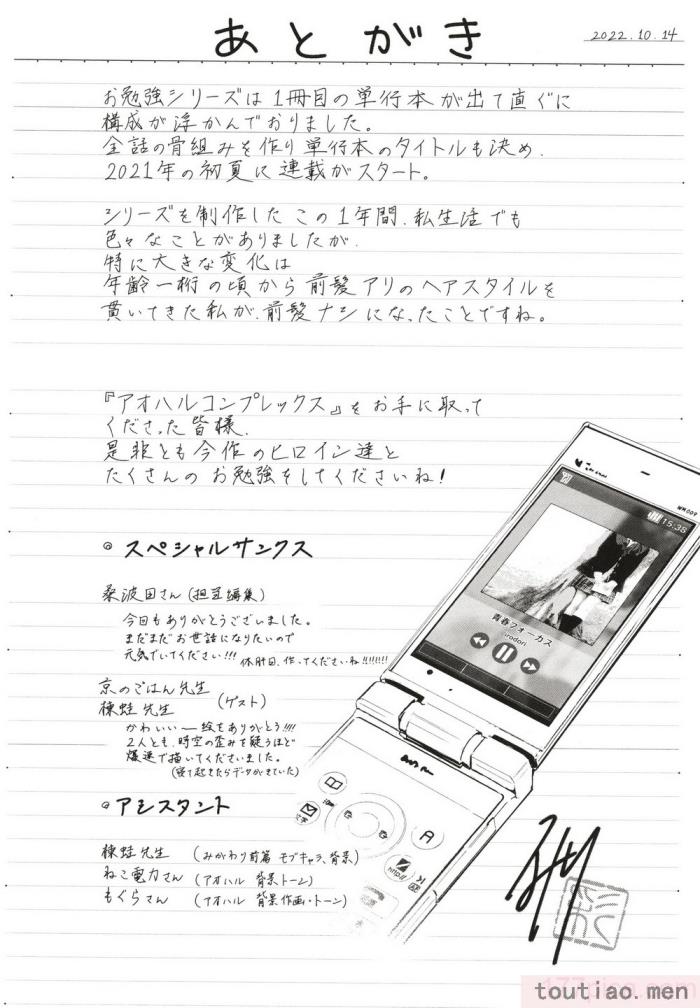 あとがき
2022.10.14
お勉強シリーズは1冊目の単行本が出て直ぐに
構成が浮かんでおりました。
全話の骨組みを作り単行本のタイトルも決め、
2021年の初夏に連載がスタート。
シリーズを制作したこの1年間、私生活でも
色々なことがありましたが、
特に大きな変化は
年齢一桁の頃から前髪アリのヘアスタイルを
貫いてきた私が、前髪ナシになったことですね。
『アオハルコンプレックス』をお手に取って
くださった皆様、
是非とも今作のヒロイン達と
たくさんのお勉強をしてくださいね!
◎スペシャルサンクス
桑波田さん(担当編集)
今回もありがとうございました。
まだまだお世話になりたいので
元気でいてください!!!
休肝日、作ってくださいね!!!!!!!
京のごはん先生
棟蛙先生
(ゲスト)
かわいい絵をありがとう!!!!
2人とも、時空の歪みを疑うほど
爆速で描いてくださいました。
(寝て起きたらデータがきていた)
◎アシスタント
棟蛙先生(みかわり前篇 モブキャラ、背景)
ねこ電力さん(アオハル 背景トーン)
もぐらさん(アオハル 背景作画・トーン)
WM009
15:38
青春フォーカス
irodori
A
文字
http://
toutiao.men